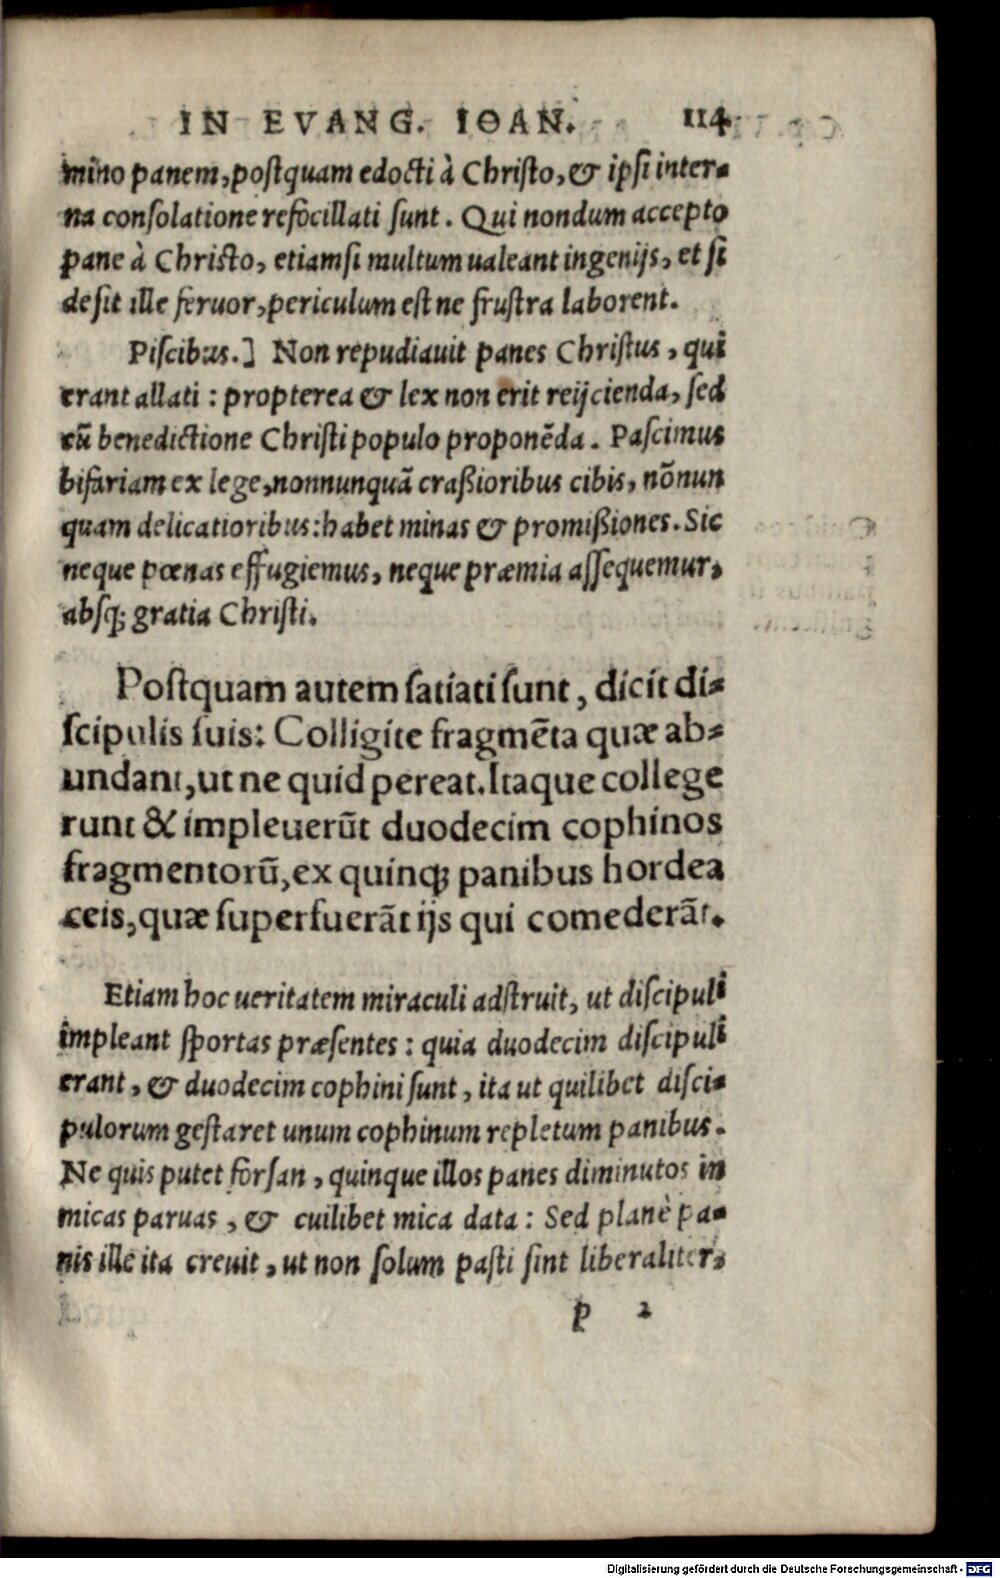 IN EVANG. IOAN. 114
mino panem, postquam edocti à Christo, & ipsi inter-
na consolatione refocillati sunt. Qui nondum accepto
pane à Christo, etiamsi multum ualeant ingenijs, et si
desit ille feruor, periculum est ne frustra laborent.
Piscibus.] Non repudiauit panes Christus, qui
erant allati: propterea & lex non erit reijcienda, sed
cũ benedictione Christi populo proponẽda. Pascimus
bifariam ex lege, nonnunquã craßioribus cibis, nõnun
quam delicatioribus: habet minas & promißiones. Sic
neque pœnas effugiemus, neque præmia assequemur,
absq; gratia Christi.
Postquam autem satiati sunt, dicit di-
scipulis suis: Colligite fragmẽta quæ ab-
undant, ut ne quid pereat. Itaque college
runt & impleuerũt duodecim cophinos
fragmentorũ, ex quinq; panibus hordea
ceis, quæ superfuerãt ijs qui comederãt.
Etiam hoc ueritatem miraculi adstruit, ut discipuli
impleant sportas præsentes: quia duodecim discipuli
erant, & duodecim cophini sunt, ita ut quilibet disci-
pulorum gestaret unum cophinum repletum panibus.
Ne quis putet forsan, quinque illos panes diminutos in
micas paruas, & cuilibet mica data: Sed planè pa-
nis ille ita creuit, ut non solum pasti sint liberaliter,
p 2
Digitalisierung gefördert durch die Deutsche Forschungsgemeinschaft - DFG